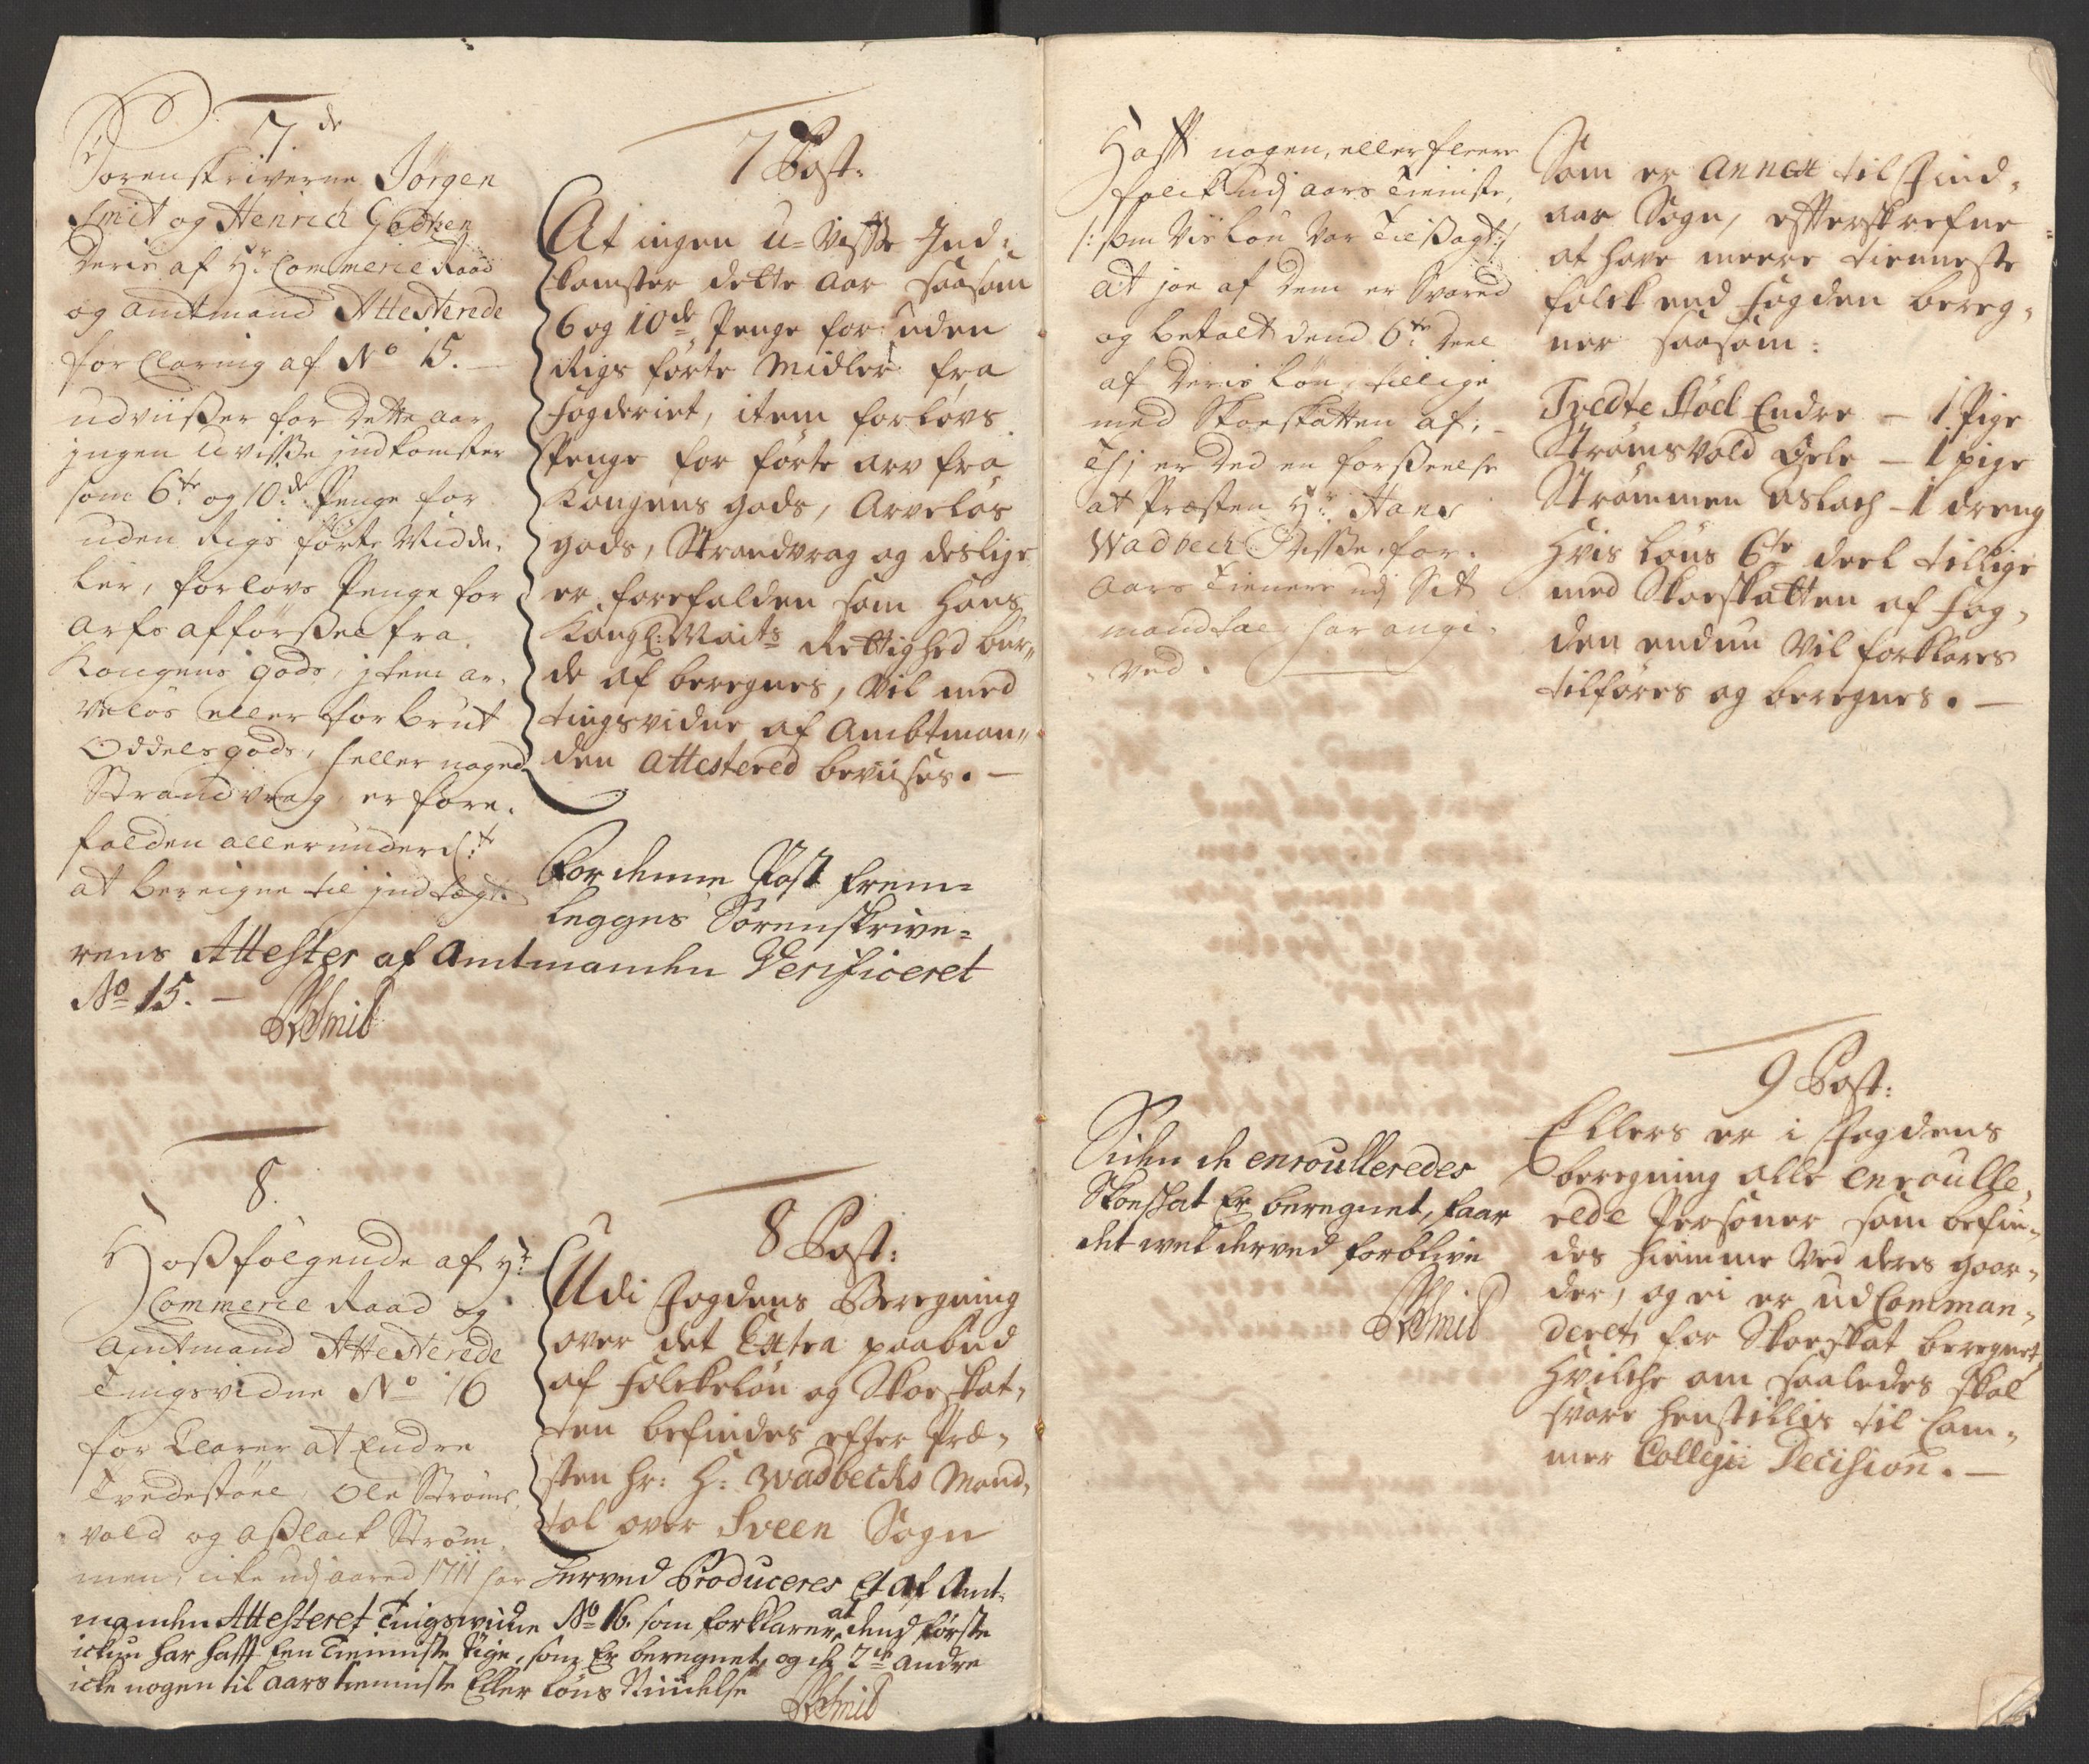 7de
Sorenskriverne Jørgen
Smit og Henrich
deris af Hr. Commercie Raad
og Amtmand Attesterede
forClaring af No 15. —
udviisser for dette aar
jngen u visse jndkomster
som 6te og 10de Penge for
uden Rigs førte Midde-
ler, forlovs Penge for
arfs afførsel fra
Kongens gods, jtem ar-
veløs eller forbrut
Oddelsgods, heller noged
Strandvrag, er fore-
falden allerunderd:t
at bereigne til jndtægt.
7 Post:
At ingen u-visse Ind-
komster dette aar saasom
6 og 10de Penge for uden
Rigs førte Midler fra
Fogderiet, item forlovs
Penge for førte arv fra
Kongens gods, Arveløs
gods, Strandvrag og deslige
er forefalden som Hans
Kongl: Maits Rettighed bur-
de af beregnes, vil med
tingsvidne af Ambtman-
den attestered beviises. —
For denne Post frem-
legges Sorenskrive-
rens Attester af Amtmanden Verificeret
No 15. —
8.
Hossfølgende af Hr
Commercie Raad og
Amtmand Attesterede
Tingsvidne No 16
for Clarer at Endre
Tvedestöel, Ole Strøms-
vold og Asslack Strøm-
men, icke udj aared 1711 har
8 Post:
Udi Fogdens Beregning
over det Extra paabud
af Folckeløn og Skoeskat-
ten befindes efter Præ-
sten Hr: H: Wadbechs Mand-
tal over Sveen Sogn
Herved Produceres Et af Amt-
manden Attesteret Tingsvidne No 16. som forklarer at dend første
ickun har hafft Een Tienniste Pige, som Er beregnet, og de 2de andre
icke nogen til aars tienniste Eller løns Nydelse
Hafft nogen, eller fleere
folck udj aars Tieniste,
/: som viis løn var Tilsagt :/
at joe af dem er svared
og betalt dend 6te deel
af deris løn, tillige
med Skoeskatten af; —
Thj er ded en forsseelse
at Præsten Hr: Hans
Wadbech disse, for
aars Tienere udj Sit
mandtal har angi-
ved.
Som er annex til Find-
aas Sogn, efterskrefne
at have meere tienneste
folck end Fogden bereg-
ner saasom:
Tvedte Støel Endre — 1 Pige
Strømsvold Ole — 1 pige
Strømmen Aslach — 1 dreng
Hvis løns 6te deel tillige
med Skoeskatten af Fog-
den endnu vil forklares
tilføres og beregnes. —
Siden de enroulleredes
Skoeskat Er beregnet, faar
det vel derved forblive
9 Post:
Ellers er i Fogdens
beregning alle enroulle-
rede Personer som befin-
des hiemme ved deres gaar-
der, og ei er udComman-
deret, for Skoeskat beregnet,
Hvilche om saaledes skal
svare henstillis til Cam-
mer Collegii Decision. —